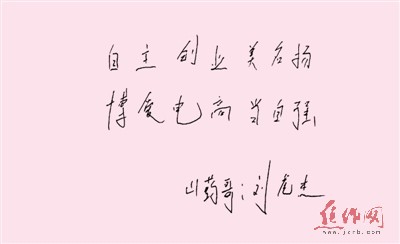 自主创业美名扬
博爱电商当自强
山药哥:刘杰
焦作网
www.jzrb.com